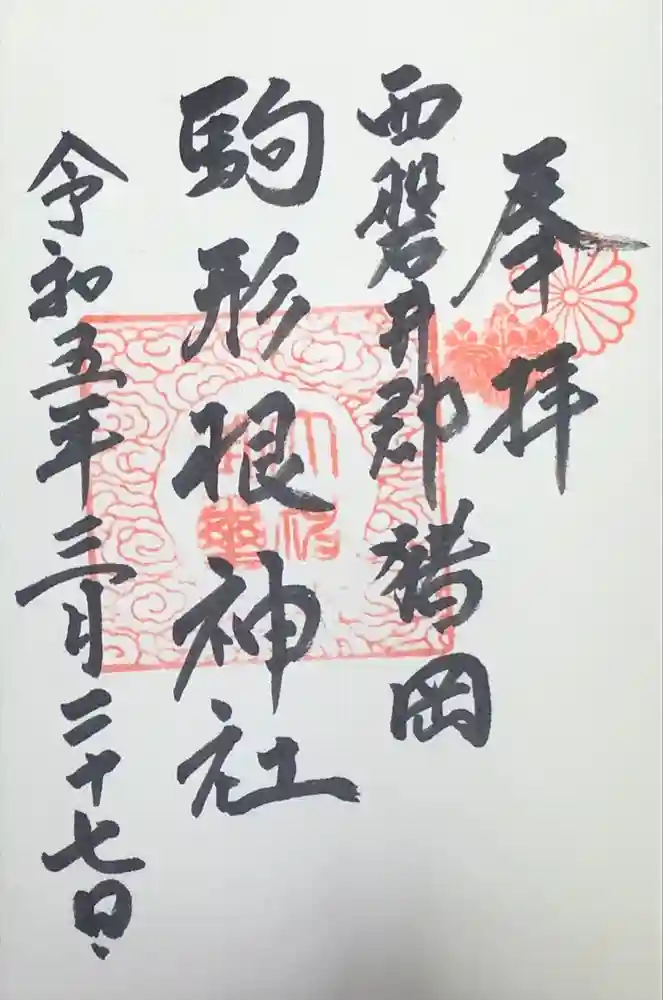 奉拝
西磐井郡 猪岡
駒形根神社
令和五年三月二十七日